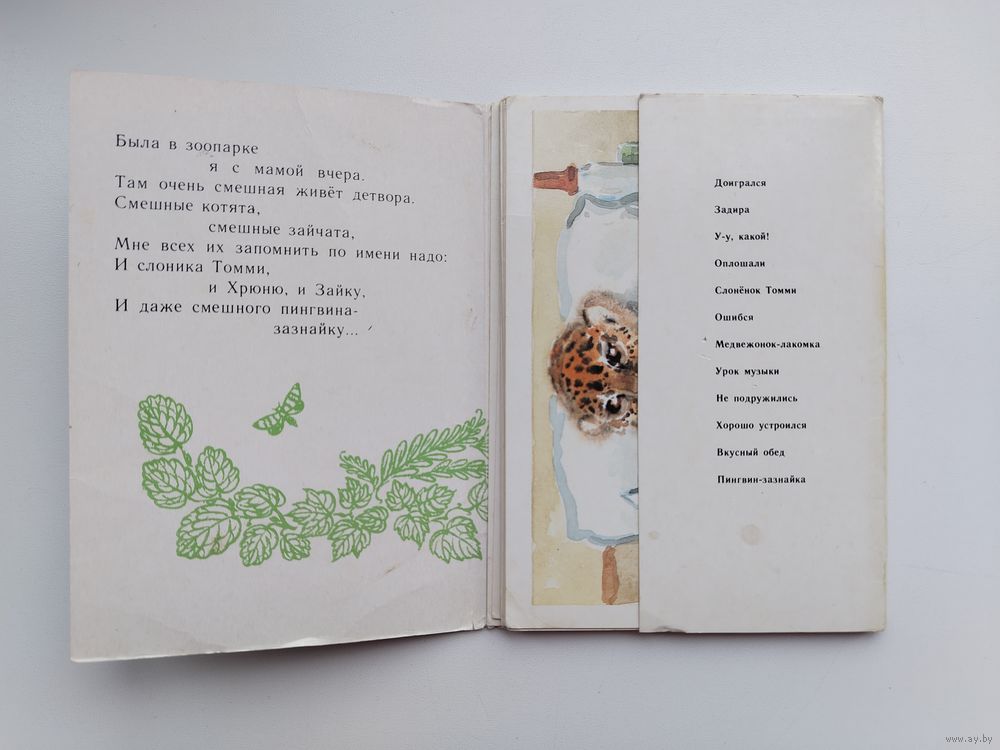 Была в зоопарке
я с мамой вчера.
Там очень смешная живёт детвора.
Смешные котята,
смешные зайчата,
Мне всех их запомнить по имени надо:
И слоника Томми,
и Хрюню, и Зайку,
И даже смешного пингвина-
зазнайку...
Доигрался
Задира
У-у, какой!
Оплошали
Слонёнок Томми
Ошибся
Медвежонок-лакомка
Урок музыки
Не подружились
Хорошо устроился
Вкусный обед
Пингвин-зазнайка
www.ay.by